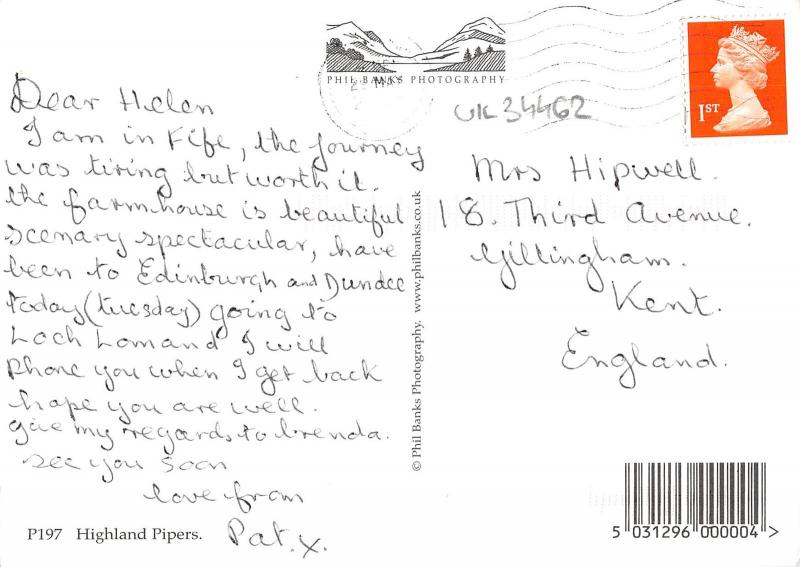 PHIL BANKS PHOTOGRAPHY
1ST
UK 34462
Dear Helen
I am in Fife, the journey
was tiring but worth it.
the farmhouse is beautiful
scenary spectacular, have
been to Edinburgh and Dundee
today (tuesday) going to
Loch Lomand I will
Phone you when I get back
hope you are well.
give my regards to brenda.
see you soon
love from
Pat. x.
Mrs Hipwell.
18. Third Avenue.
Gillingham.
Kent.
England.
© Phil Banks Photography. www.philbanks.co.uk
P197 Highland Pipers.
5 031296 000004 >